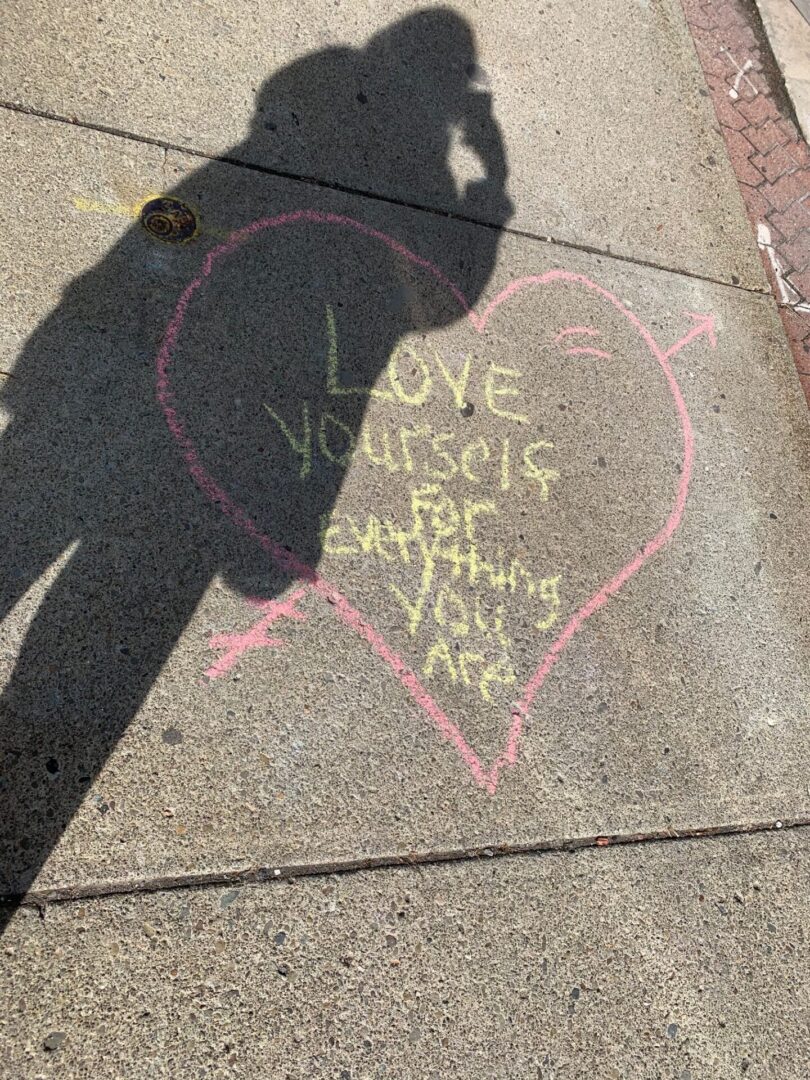 Love
Yourself
For
Everything
You
Are